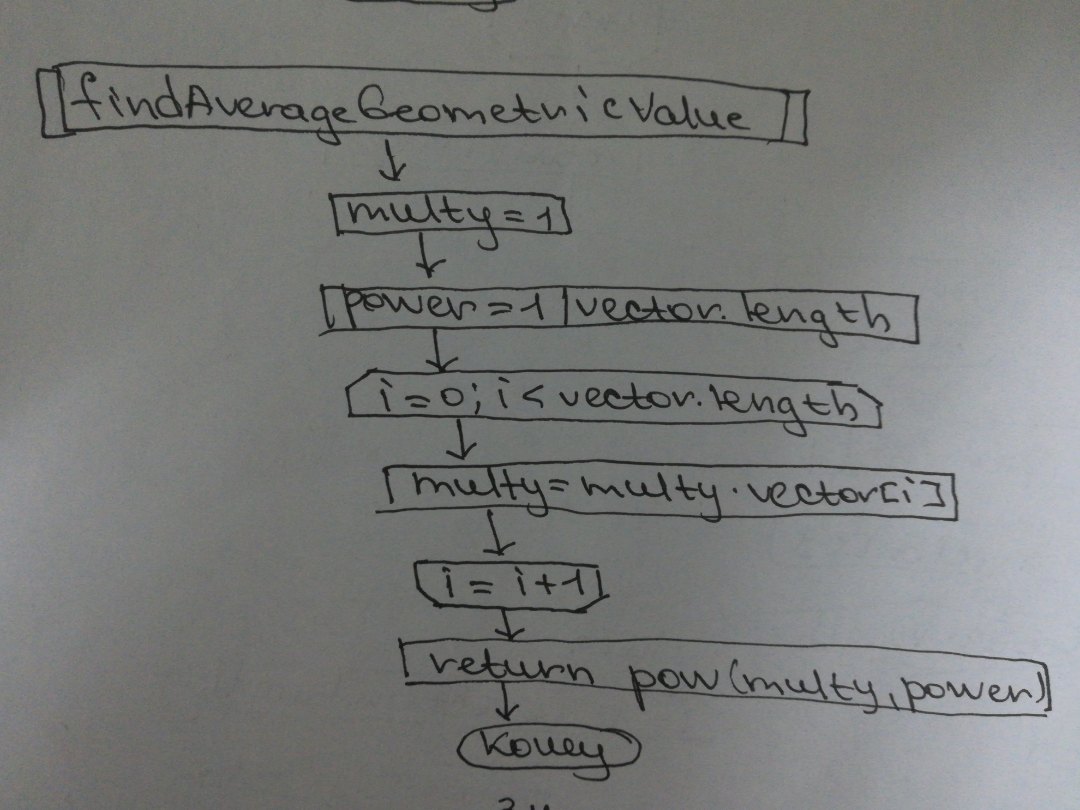 findAverageGeometricValue
multy=1
power=1|vector.length
i=0; i<vector.length
multy=multy·vector[i]
i=i+1
return pow(multy,power)
конец